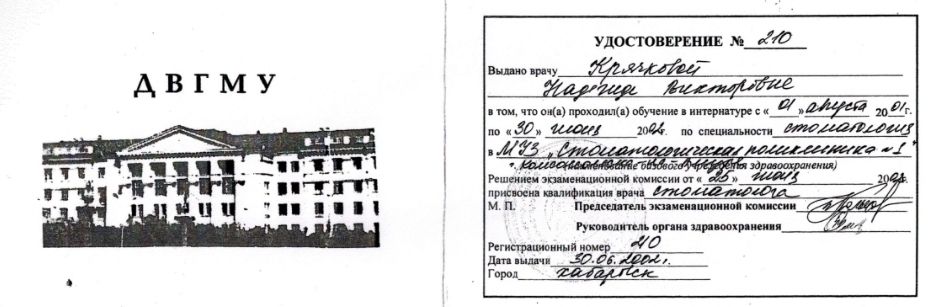 ДВГМУ
УДОСТОВЕРЕНИЕ № 210
Выдано врачу Крячковой
Надежде Викторовне
в том, что он(а) проходил(а) обучение в интернатуре с « 01 » августа 2001 г.
по « 30 » июня 2002. по специальности стоматология
в МУЗ „Стоматологическая поликлиника №1"
г. Комсомольска-на-Амуре
(наименование базового учреждения здравоохранения)
Решением экзаменационной комиссии от « 25 » июня 2002
присвоена квалификация врача стоматолога
М. П. Председатель экзаменационной комиссии
Руководитель органа здравоохранения
Регистрационный номер 210
Дата выдачи 30.06.2002 г.
Город Хабаровск